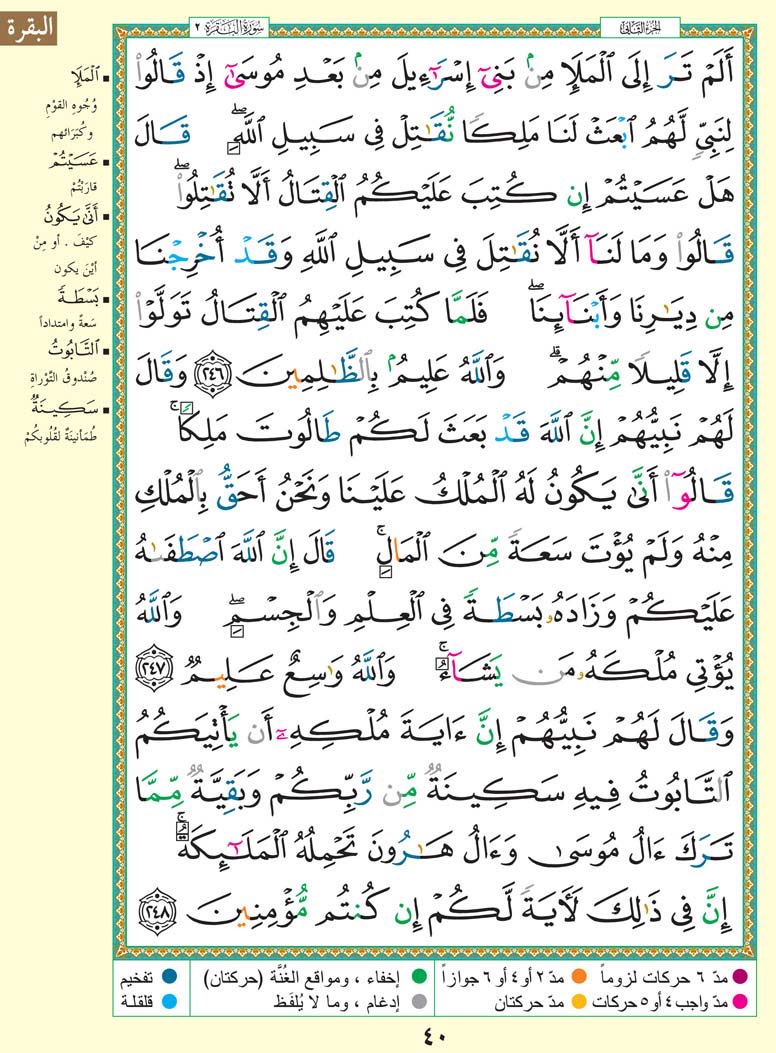 الجزء الثاني
سورة البقرة ٢
البقرة
أَلَمْ تَرَ إِلَى ٱلْمَلَإِ مِنۢ بَنِىٓ إِسْرَٰٓءِيلَ مِنۢ بَعْدِ مُوسَىٰٓ إِذْ قَالُوا۟
لِنَبِىٍّ لَّهُمُ ٱبْعَثْ لَنَا مَلِكًا نُّقَٰتِلْ فِى سَبِيلِ ٱللَّهِ ۖ قَالَ
هَلْ عَسَيْتُمْ إِن كُتِبَ عَلَيْكُمُ ٱلْقِتَالُ أَلَّا تُقَٰتِلُوا۟ ۖ
قَالُوا۟ وَمَا لَنَآ أَلَّا نُقَٰتِلَ فِى سَبِيلِ ٱللَّهِ وَقَدْ أُخْرِجْنَا
مِن دِيَٰرِنَا وَأَبْنَآئِنَا ۖ فَلَمَّا كُتِبَ عَلَيْهِمُ ٱلْقِتَالُ تَوَلَّوْا۟
إِلَّا قَلِيلًا مِّنْهُمْ ۗ وَٱللَّهُ عَلِيمٌۢ بِٱلظَّٰلِمِينَ ٢٤٦ وَقَالَ
لَهُمْ نَبِيُّهُمْ إِنَّ ٱللَّهَ قَدْ بَعَثَ لَكُمْ طَالُوتَ مَلِكًا ۚ
قَالُوٓا۟ أَنَّىٰ يَكُونُ لَهُ ٱلْمُلْكُ عَلَيْنَا وَنَحْنُ أَحَقُّ بِٱلْمُلْكِ
مِنْهُ وَلَمْ يُؤْتَ سَعَةً مِّنَ ٱلْمَالِ ۚ قَالَ إِنَّ ٱللَّهَ ٱصْطَفَىٰهُ
عَلَيْكُمْ وَزَادَهُۥ بَسْطَةً فِى ٱلْعِلْمِ وَٱلْجِسْمِ ۖ وَٱللَّهُ
يُؤْتِى مُلْكَهُۥ مَن يَشَآءُ ۚ وَٱللَّهُ وَٰسِعٌ عَلِيمٌ ٢٤٧
وَقَالَ لَهُمْ نَبِيُّهُمْ إِنَّ ءَايَةَ مُلْكِهِۦٓ أَن يَأْتِيَكُمُ
ٱلتَّابُوتُ فِيهِ سَكِينَةٌ مِّن رَّبِّكُمْ وَبَقِيَّةٌ مِّمَّا
تَرَكَ ءَالُ مُوسَىٰ وَءَالُ هَٰرُونَ تَحْمِلُهُ ٱلْمَلَٰٓئِكَةُ ۚ
إِنَّ فِى ذَٰلِكَ لَءَايَةً لَّكُمْ إِن كُنتُم مُّؤْمِنِينَ ٢٤٨
ٱلْمَلَإِ
وُجُوهِ القَوْمِ
وكُبَرَائِهِم
عَسَيْتُمْ
قَارَبْتُمْ
أَنَّىٰ يَكُونُ
كيْفَ . أو مِنْ
أيْنَ يكون
بَسْطَةً
سَعةً وامتداداً
ٱلتَّابُوتُ
صُنْدوقُ التَّوْراةِ
سَكِينَةٌ
طُمَأنينَةٌ لقُلُوبِكُمْ
مدّ ٦ حركات لزوماً
مدّ ٢ أو ٤ أو ٦ جوازاً
إخفاء ، ومواقع الغُنَّة (حركتان)
تفخيم
مدّ واجب ٤ أو ٥ حركات
مدّ حركتان
إدغام ، وما لا يُلفَظ
قلقلة
٤٠